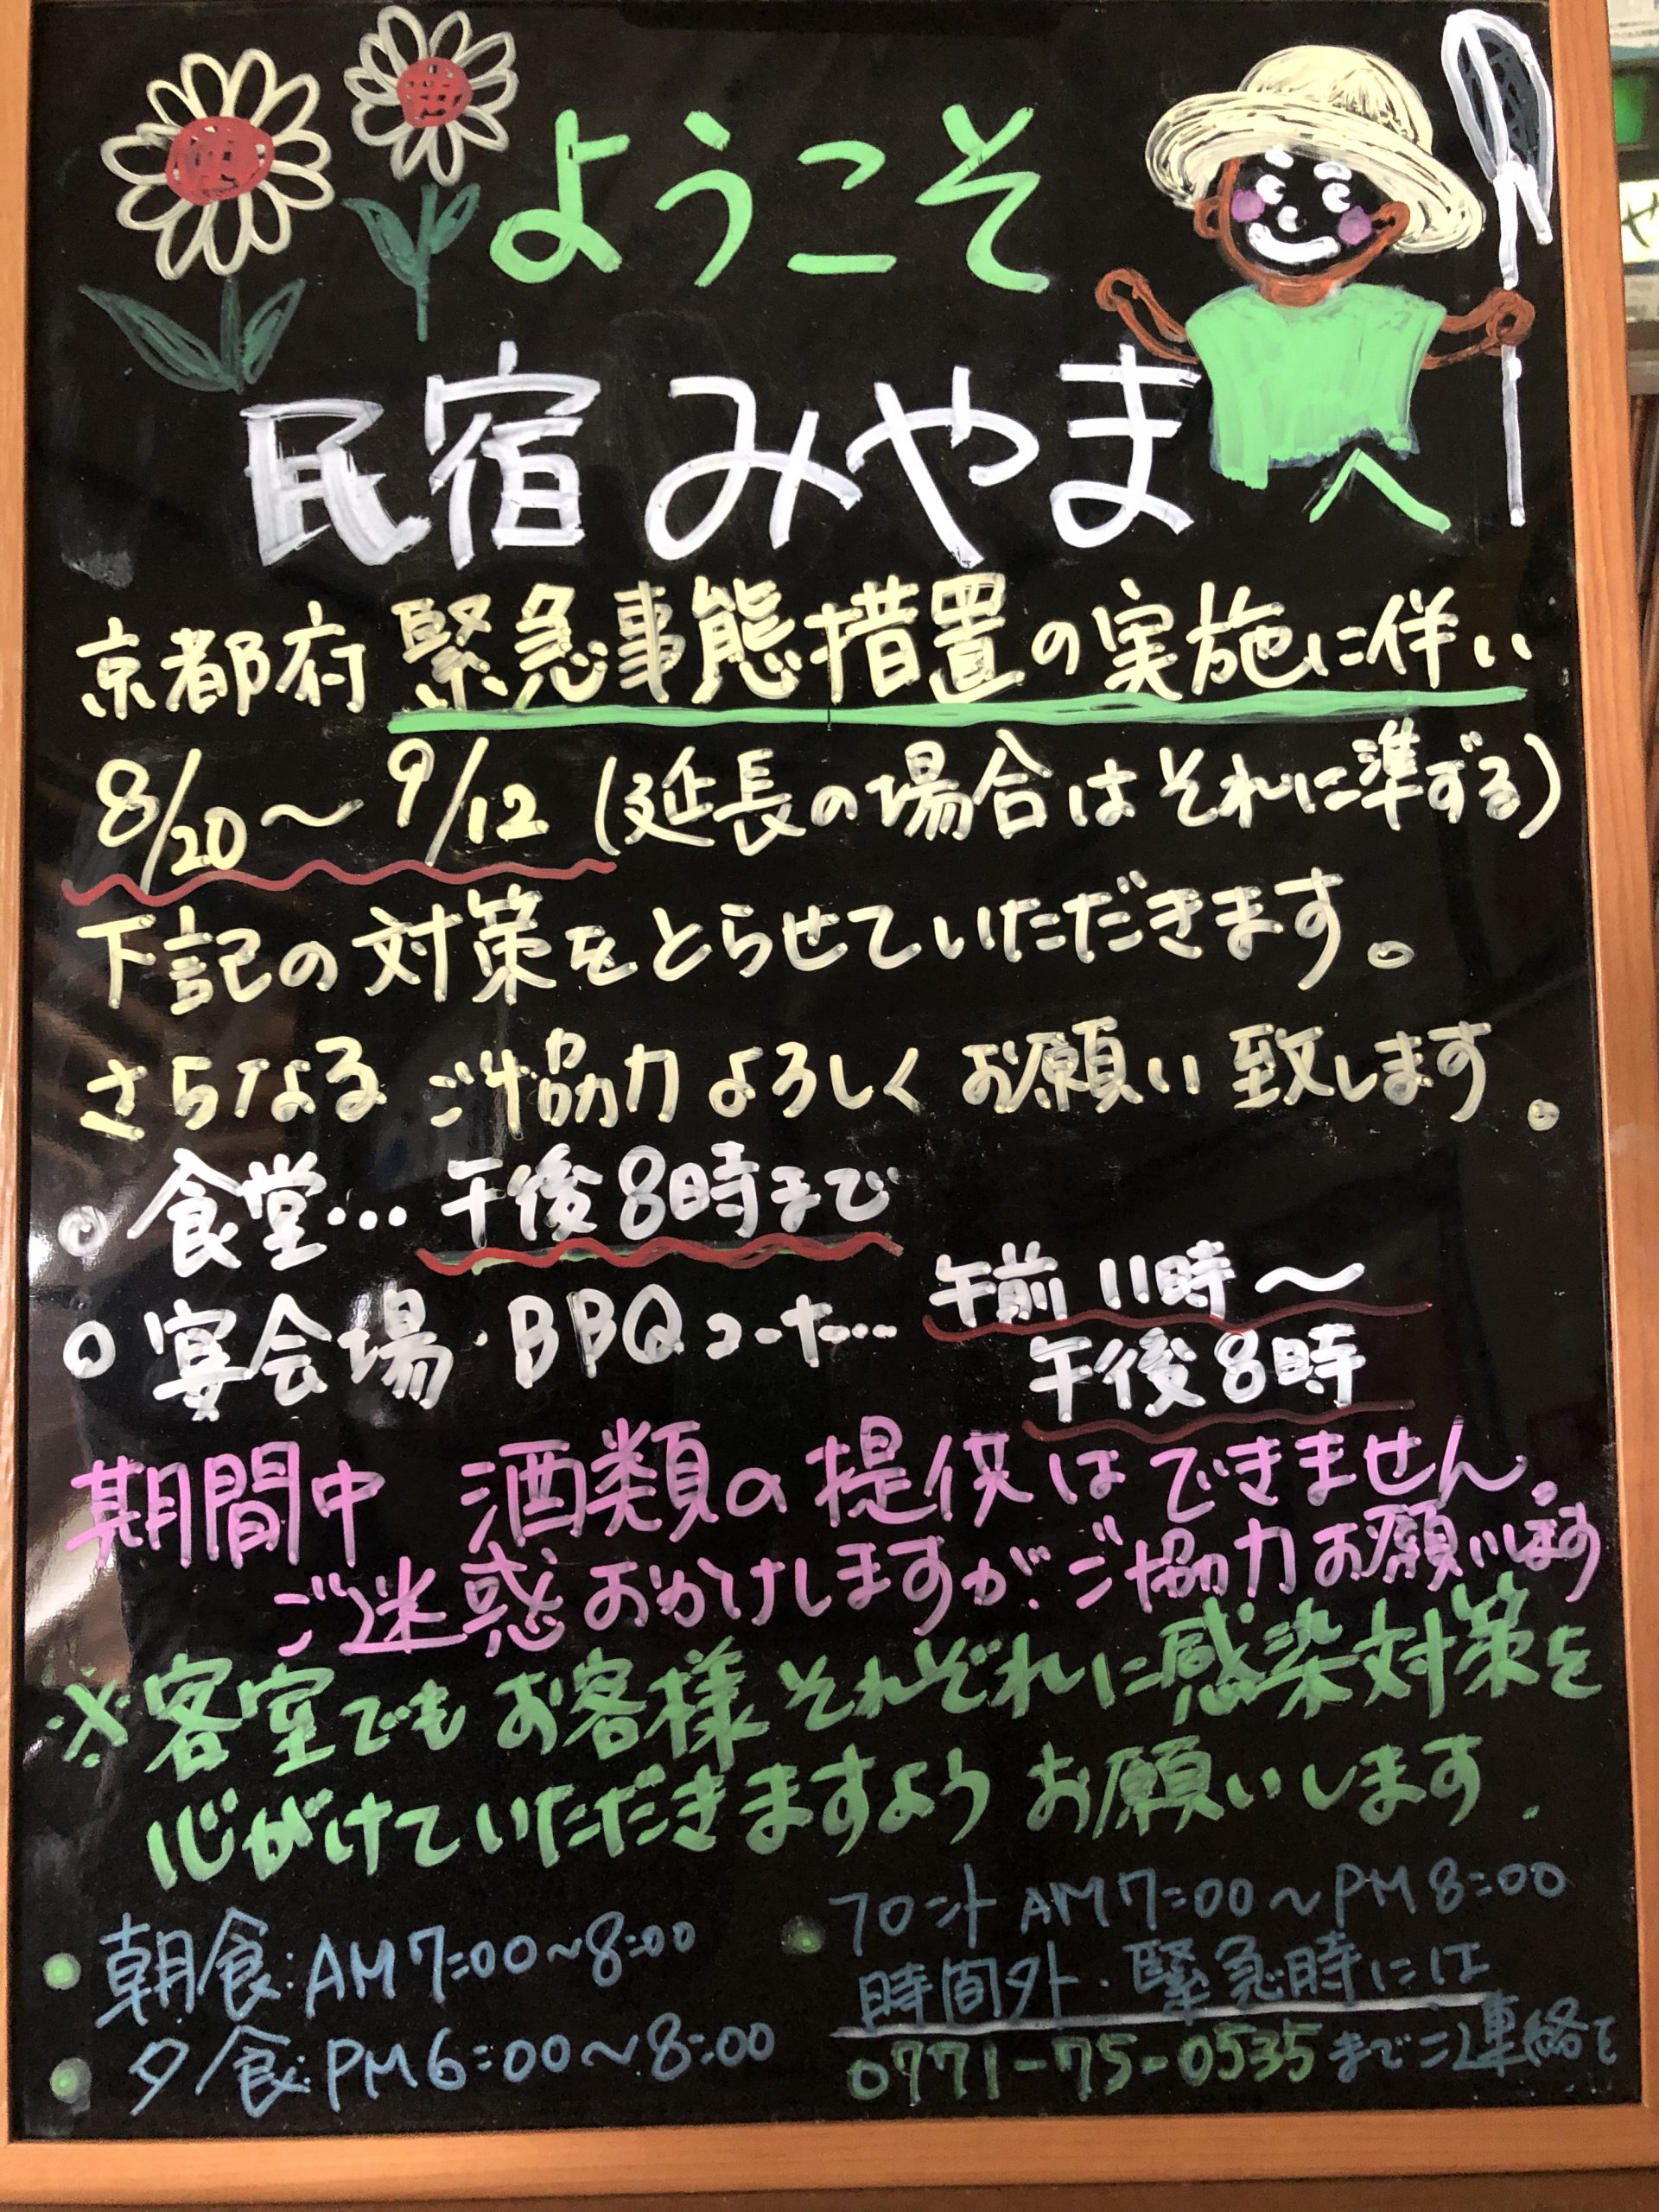 ようこそ
民宿みやまへ
京都府 緊急事態措置の実施に伴い
8/20〜9/12 (延長の場合はそれに準ずる)
下記の対策をとらせていただきます。
さらなる ご協力よろしく お願い致します。
○ 食堂… 午後8時まで
○ 宴会場・BBQコーナー… 午前11時〜
午後8時
期間中 酒類の提供はできません。
ご迷惑おかけしますが、ご協力お願いします
※客室でもお客様それぞれに感染対策を
心がけていただきますようお願いします.
朝食:AM7:00~8:00
夕食:PM6:00~8:00
フロント AM7:00~PM8:00
時間外・緊急時には
0771-75-0535までご連絡を